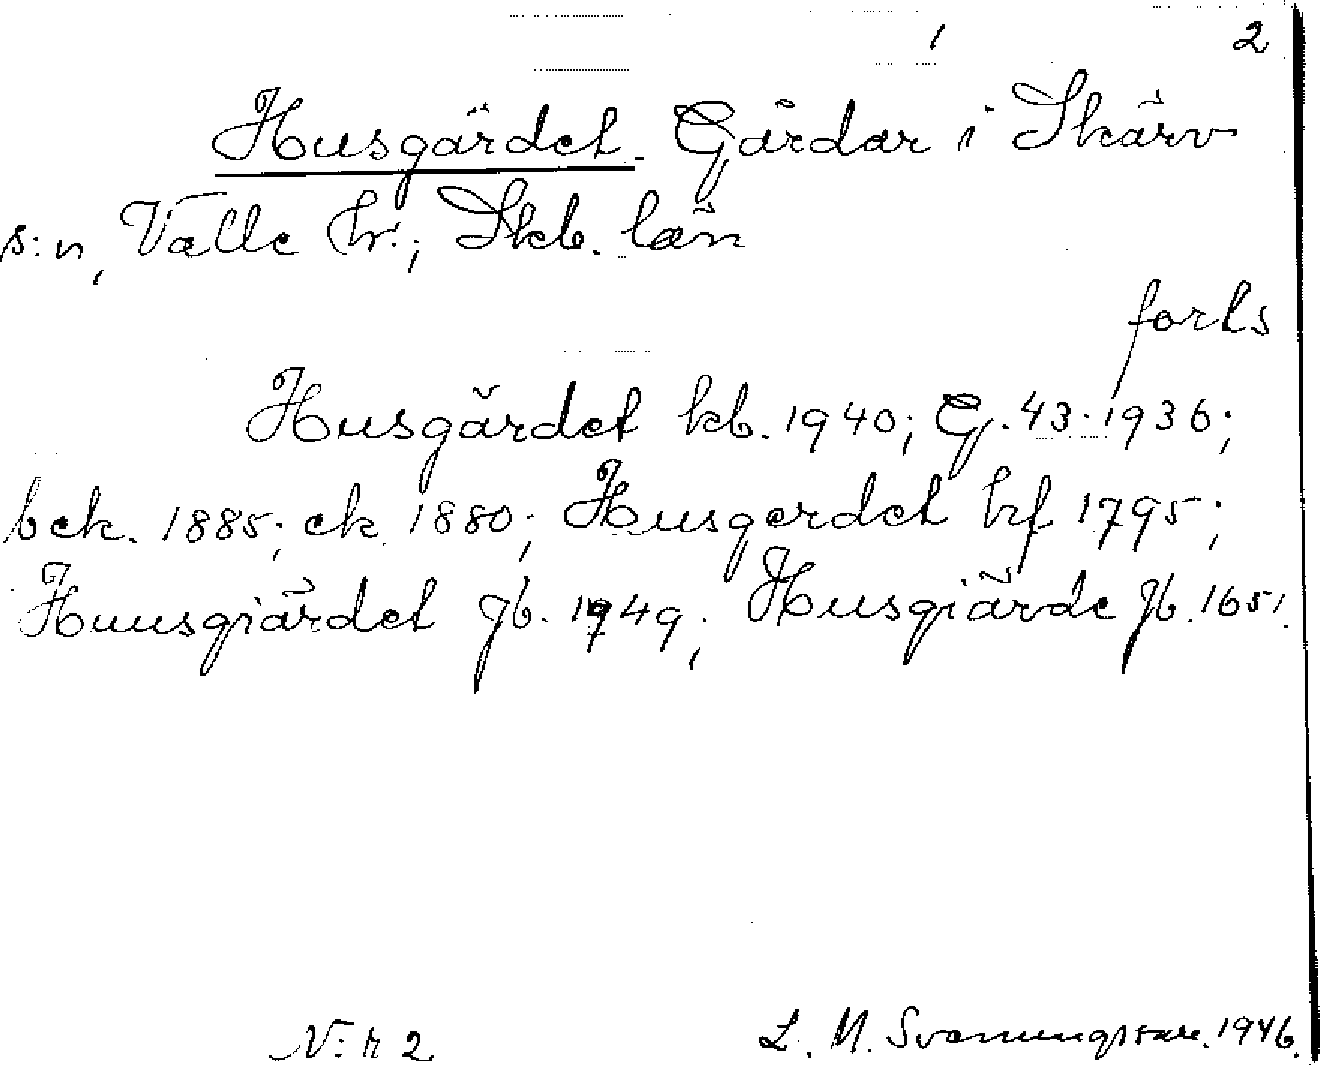 2
Husgärdet. Gårdar i Skärv
s:n, Valle hr.; Skb. län
forts
Husgärdet kb. 1940; G. 43. 1936;
bek. 1885; ek 1880; Husgerdet hf 1795;
Huusgiärdet jb. 1949; Husgiärde jb. 1651.
N:r 2
L. M. Svenungsson. 1946.